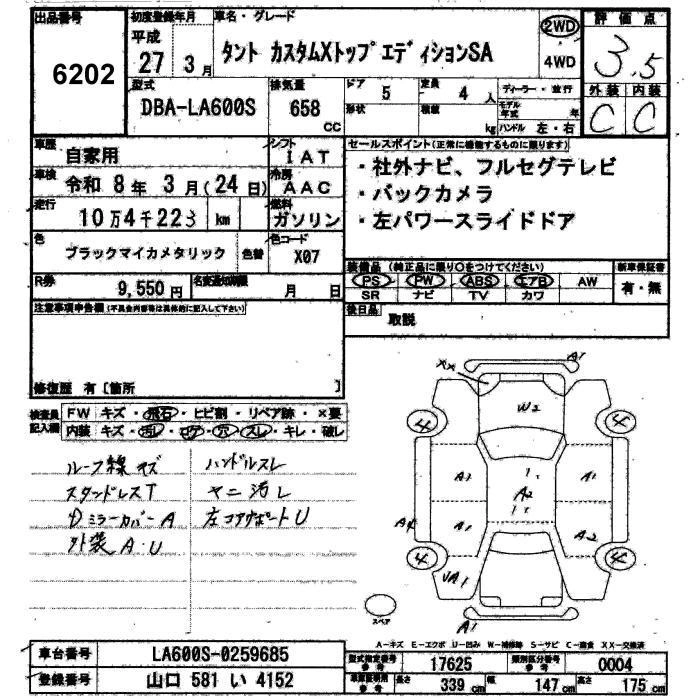 出品番号
6202
初度登録年月
平成
27 3月
車名・グレード
タント カスタムXトップエディションSA
2WD
4WD
評価点
3.5
外装 内装
C C
型式
DBA-LA600S
排気量
658 cc
ドア
5
定員
4 人
形状
積載
kg
ディーラー・並行
モデル年式 年
ハンドル 左・右
車歴
自家用
シフト
IAT
車検
令和 8年 3月(24日)
冷房
AAC
走行
10万4千223 km
燃料
ガソリン
色
ブラックマイカメタリック
色替
色コード
X07
R券
9,550 円
名変通知期限
月 日
セールスポイント(正常に機能するものに限ります)
・社外ナビ、フルセグテレビ
・バックカメラ
・左パワースライドドア
装備品 (純正品に限り○をつけてください)
PS PW ABS エアB AW
SR ナビ TV カワ
新車保証書
有・無
後日品
取説
注意事項申告欄(不具合内容等は具体的に記入して下さい)
修復歴 有〔箇所 〕
検査員記入欄
FW キズ・飛石・ヒビ割・リペア跡・×要
内装 キズ・汚レ・コゲ・穴・スレ・キレ・破レ
ルーフ線キズ
スタンドレスT
ミラーカバーA
外装 A・U
ハンドルスレ
ヤニ汚レ
左コアサポートU
XX
A1
W2
4
4
A1
A2
A1
A1
A2
4
4
A1
スペア
A-キズ E-エクボ U-凹み W-補修跡 S-サビ C-腐食 XX-交換済
車台番号
LA600S-0259685
登録番号
山口 581 い 4152
型式指定番号 参考
17625
類別区分番号 参考
0004
長さ 339 cm
幅 147 cm
高さ 175 cm